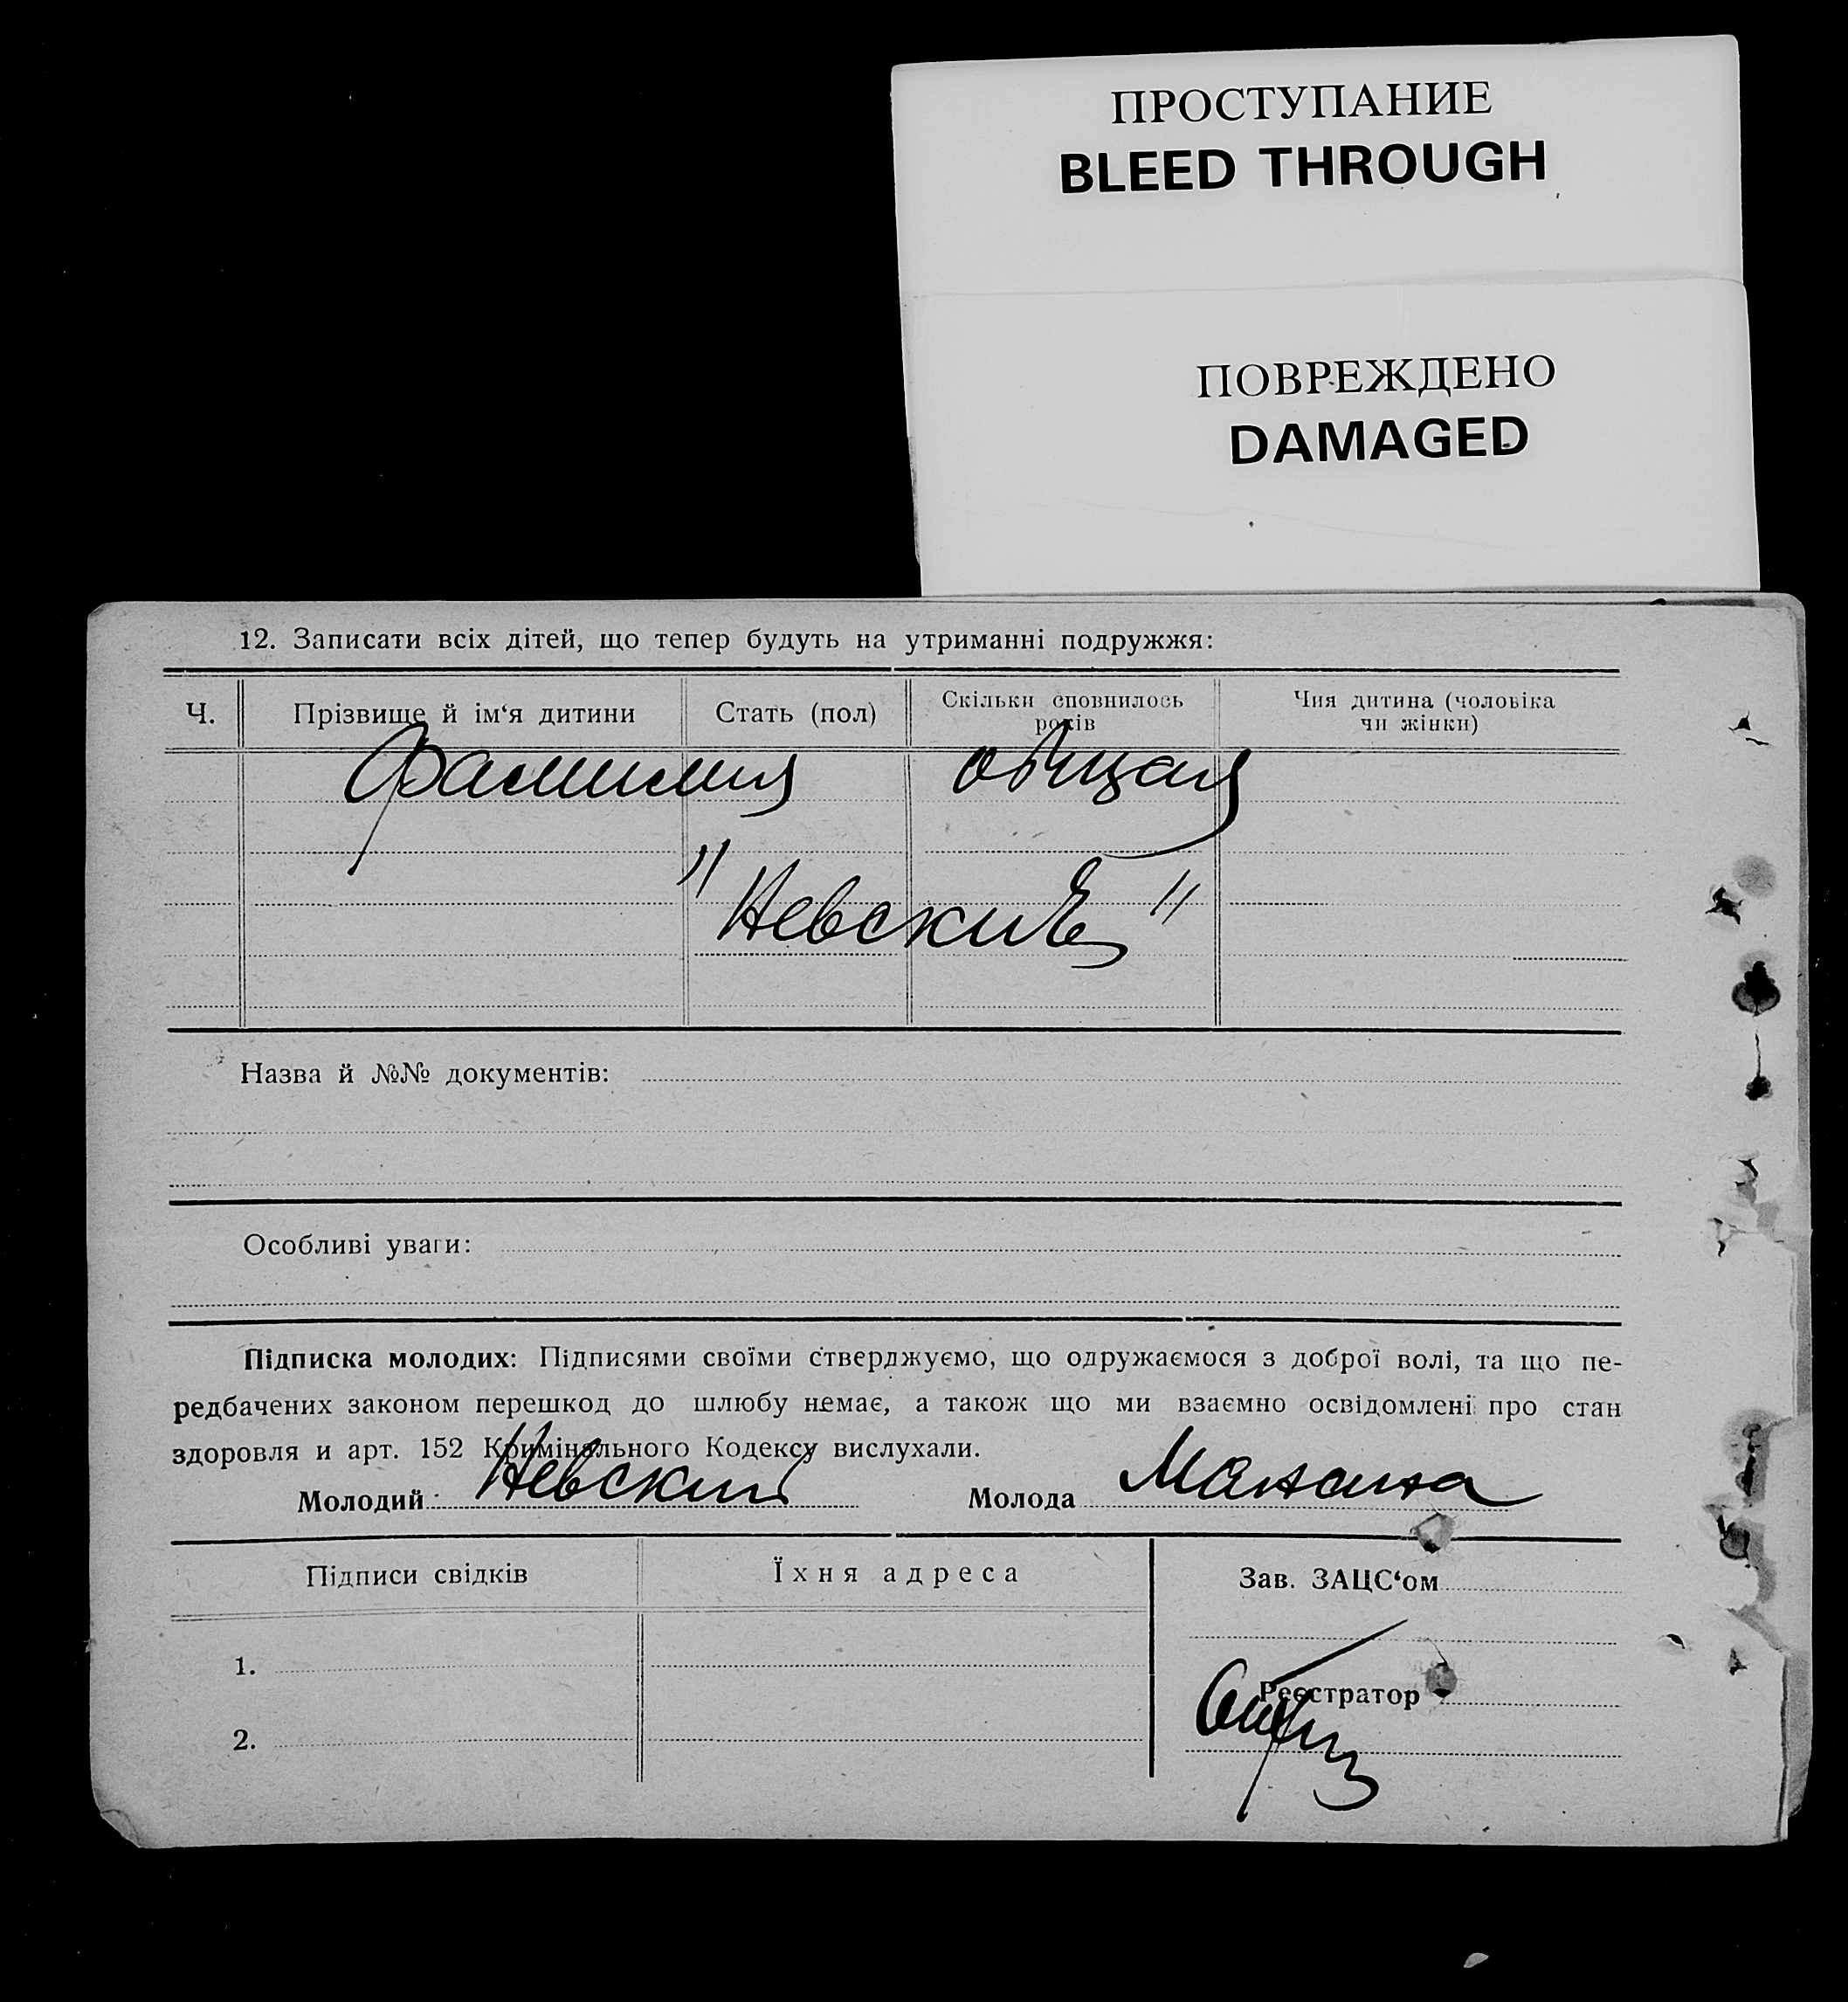 ПРОСТУПАНИЕ
BLEED THROUGH
ПОВРЕЖДЕНО
DAMAGED
12. Записати всіх дітей, що тепер будуть на утриманні подружжя:
Ч. Прізвище й ім‘я дитини Стать (пол) Скільки сповнилось років Чия дитина (чоловіка чи жінки)
Фамилия общая
"Невские"
Назва й №№ документів:
Особливі уваги:
Підписка молодих: Підписями своїми стверджуємо, що одружаємося з доброї волі, та що пе-
редбачених законом перешкод до шлюбу немає, а також що ми взаємно освідомлені про стан
здоровля и арт. 152 Кримінального Кодексу вислухали.
Молодий Невский Молода
Підписи свідків Їхня адреса Зав. ЗАЦС‘ом
1.
Реєстратор
2.